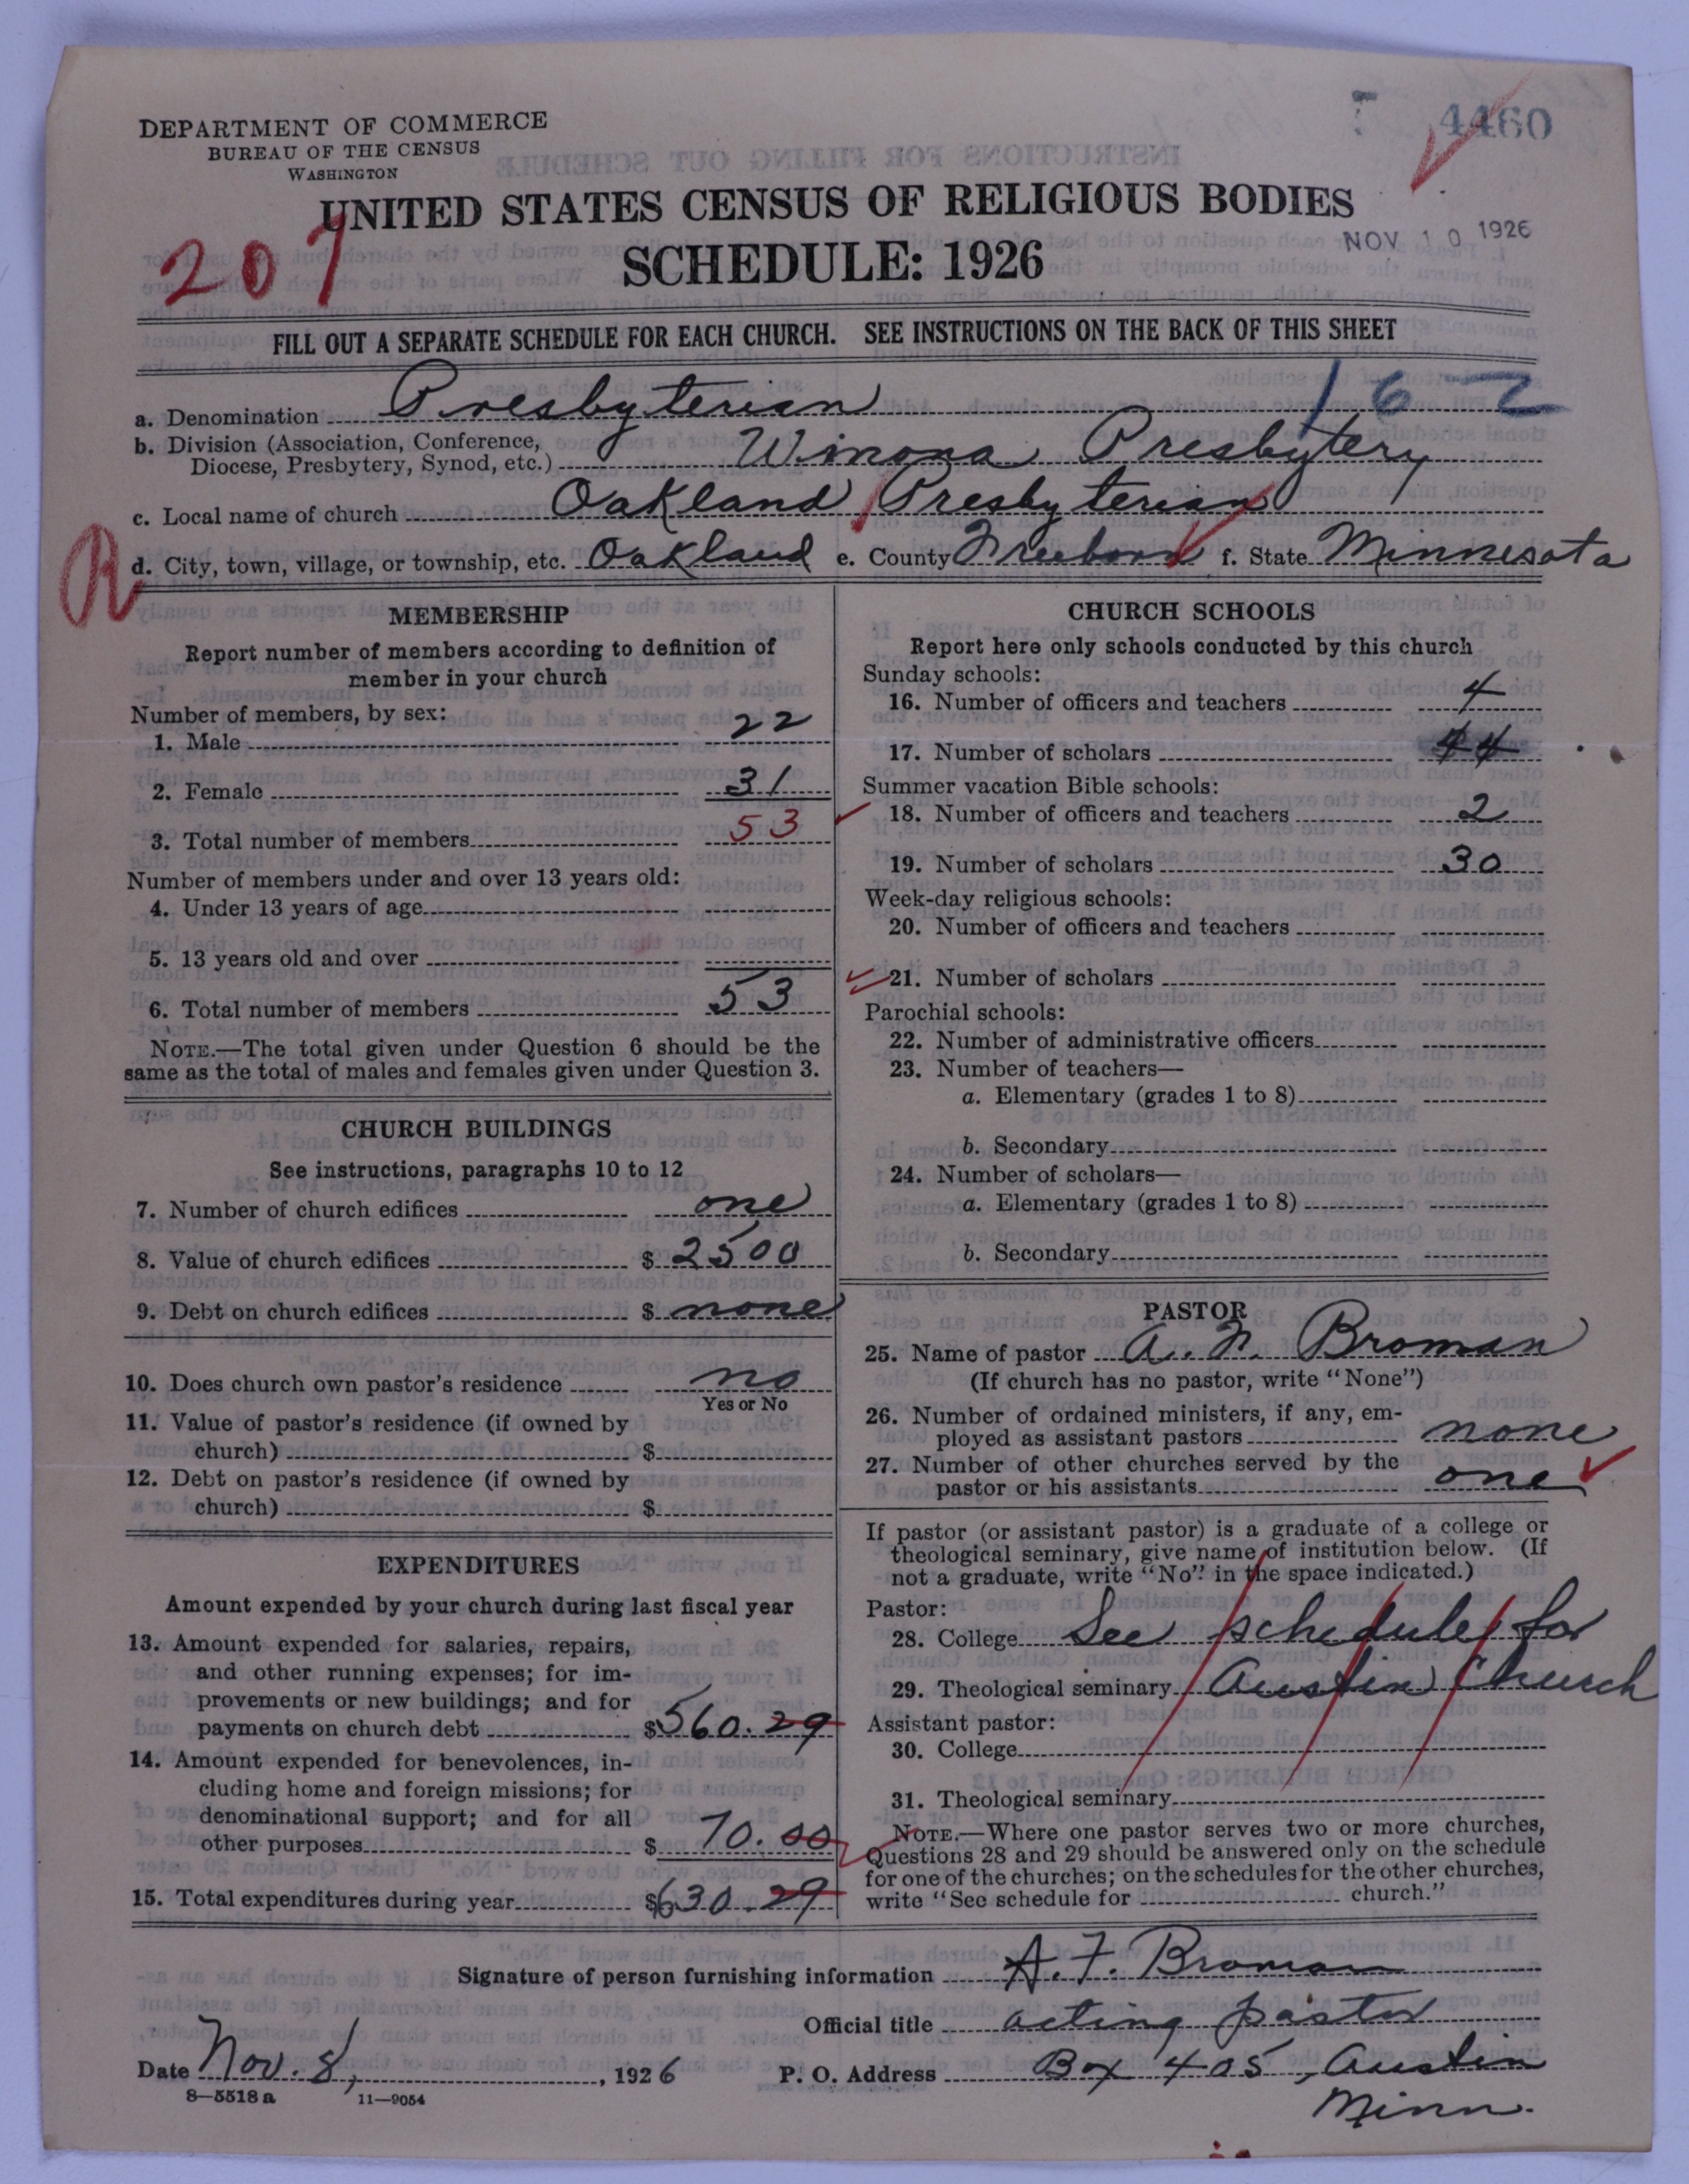 4460
DEPARTMENT OF COMMERCE
BUREAU OF THE CENSUS
WASHINGTON
UNITED STATES CENSUS OF RELIGIOUS BODIES
NOV 10 1926
207
SCHEDULE: 1926
FILL OUT A SEPARATE SCHEDULE FOR EACH CHURCH. SEE INSTRUCTIONS ON THE BACK OF THIS SHEET
162
a. Denomination Presbyterian
b. Division (Association, Conference,
Diocese, Presbytery, Synod, etc.) Winona Presbytery
c. Local name of church Oakland Presbyterian
R
d. City, town, village, or township, etc. Oakland e. County Freeborn f. State Minnesota
MEMBERSHIP
Report number of members according to definition of
member in your church
Number of members, by sex:
1. Male 22
2. Female 31
3. Total number of members 53
Number of members under and over 13 years old:
4. Under 13 years of age
5. 13 years old and over
6. Total number of members 53
NOTE.—The total given under Question 6 should be the
same as the total of males and females given under Question 3.
CHURCH BUILDINGS
See instructions, paragraphs 10 to 12
7. Number of church edifices one
8. Value of church edifices $ 2500
9. Debt on church edifices $ none
10. Does church own pastor's residence no
Yes or No
11. Value of pastor's residence (if owned by
church) $
12. Debt on pastor's residence (if owned by
church) $
EXPENDITURES
Amount expended by your church during last fiscal year
13. Amount expended for salaries, repairs,
and other running expenses; for im-
provements or new buildings; and for
payments on church debt $560.29
14. Amount expended for benevolences, in-
cluding home and foreign missions; for
denominational support; and for all
other purposes $ 70.00
15. Total expenditures during year $630.29
CHURCH SCHOOLS
Report here only schools conducted by this church
Sunday schools:
16. Number of officers and teachers 4
17. Number of scholars 44
Summer vacation Bible schools:
18. Number of officers and teachers 2
19. Number of scholars 30
Week-day religious schools:
20. Number of officers and teachers
21. Number of scholars
Parochial schools:
22. Number of administrative officers
23. Number of teachers—
a. Elementary (grades 1 to 8)
b. Secondary
24. Number of scholars—
a. Elementary (grades 1 to 8)
b. Secondary
PASTOR
25. Name of pastor A. F. Broman
(If church has no pastor, write "None")
26. Number of ordained ministers, if any, em-
ployed as assistant pastors none
27. Number of other churches served by the
pastor or his assistants one
If pastor (or assistant pastor) is a graduate of a college or
theological seminary, give name of institution below. (If
not a graduate, write "No" in the space indicated.)
Pastor:
28. College See schedule for
29. Theological seminary Austin Church
Assistant pastor:
30. College
31. Theological seminary
NOTE.—Where one pastor serves two or more churches,
Questions 28 and 29 should be answered only on the schedule
for one of the churches; on the schedules for the other churches,
write "See schedule for church."
Signature of person furnishing information A. F. Broman
Official title acting pastor
Date Nov. 8, 1926 P. O. Address Box 405, Austin
Minn.
8—5518a 11—9054